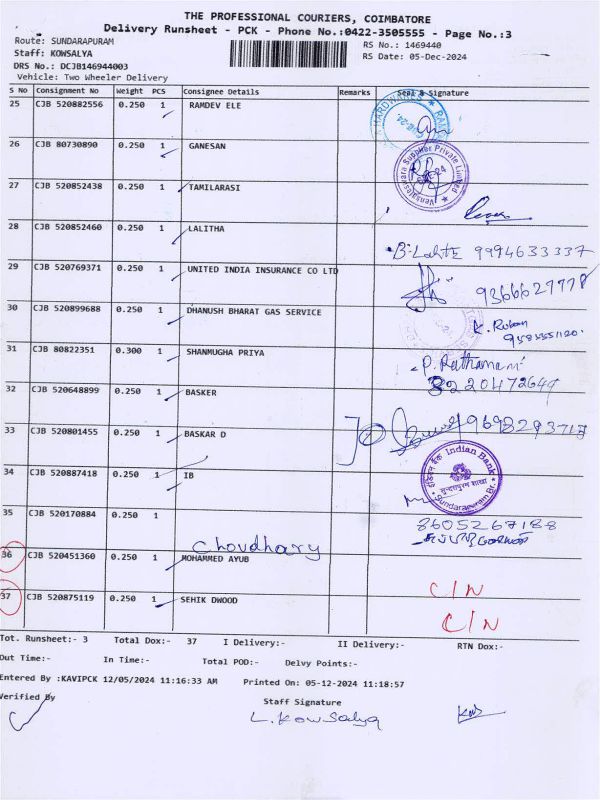 THE PROFESSIONAL COURIERS, COIMBATORE
Delivery Runsheet - PCK - Phone No.:0422-3505555 - Page No.:3
Route: SUNDARAPURAM
RS No.: 1469440
Staff: KOWSALYA
RS Date: 05-Dec-2024
DRS No.: DCJB146944003
Vehicle: Two Wheeler Delivery
S No Consignment No Weight PCS Consignee Details Remarks Seal & Signature
25 CJB 520882556 0.250 1 RAMDEV ELE
26 CJB 80730890 0.250 1 GANESAN
Vensaleswara Supplier Private Limited
27 CJB 520852438 0.250 1 TAMILARASI
28 CJB 520852460 0.250 1 LALITHA
9994633337
29 CJB 520769371 0.250 1 UNITED INDIA INSURANCE CO LTD
9366627778
30 CJB 520899688 0.250 1 DHANUSH BHARAT GAS SERVICE
31 CJB 80822351 0.300 1 SHANMUGHA PRIYA
32 CJB 520648899 0.250 1 BASKER
33 CJB 520801455 0.250 1 BASKAR D
34 CJB 520887418 0.250 1 IB
इंडियन बैंक Indian Bank
Sundarapuram Br.
35 CJB 520170884 0.250 1
8605267188
Choudhary
36 CJB 520451360 0.250 1 MOHAMMED AYUB
C/N
37 CJB 520875119 0.250 1 SEHIK DWOOD
C/N
Tot. Runsheet:- 3 Total Dox:- 37 I Delivery:- II Delivery:- RTN Dox:-
Out Time:- In Time:- Total POD:- Delvy Points:-
Entered By :KAVIPCK 12/05/2024 11:16:33 AM Printed On: 05-12-2024 11:18:57
Verified By
Staff Signature
L. Kowsalya